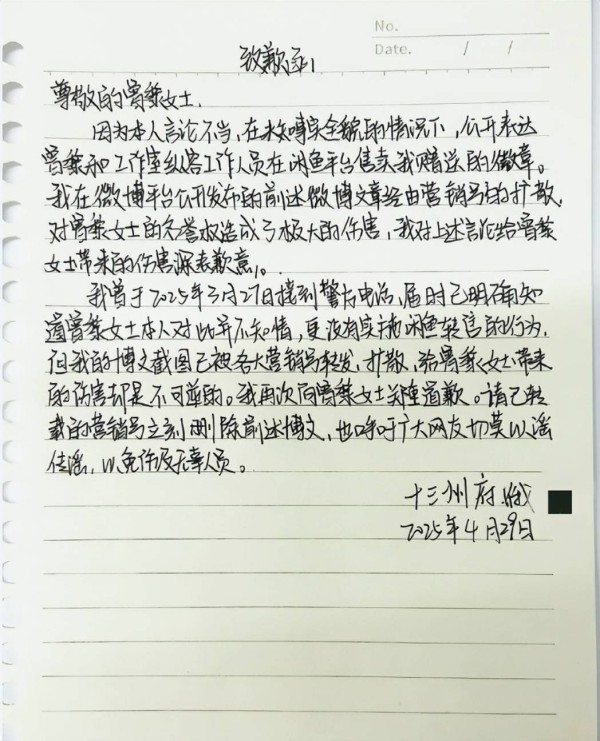 No.
Date. / /
致歉函
尊敬的曾黎女士.
因为本人言论不当,在未知事实全貌的情况下,公开表达
曾黎和工作室纵容工作人员在闲鱼平台售卖我赠送的徽章。
我在微博平台公开发布的前述微博文章经由营销号的扩散,
对曾黎女士的名誉权造成了极大的伤害,我对上述言论给曾黎
女士带来的伤害深表歉意。
我曾于2025年3月27日接到警方电话,届时已明确知
道曾黎女士本人对此并不知情,更没有实施闲鱼转售的行为,
但我的博文截图已被各大营销号转发,扩散,给曾黎女士带来
的伤害却是不可逆的。我再次向曾黎女士关隆道歉。请已转
载的营销号立刻删除前述博文,也呼吁广大网友切莫以谣
传谣,以免伤及无辜人员。
十三州府
2025年4月29日